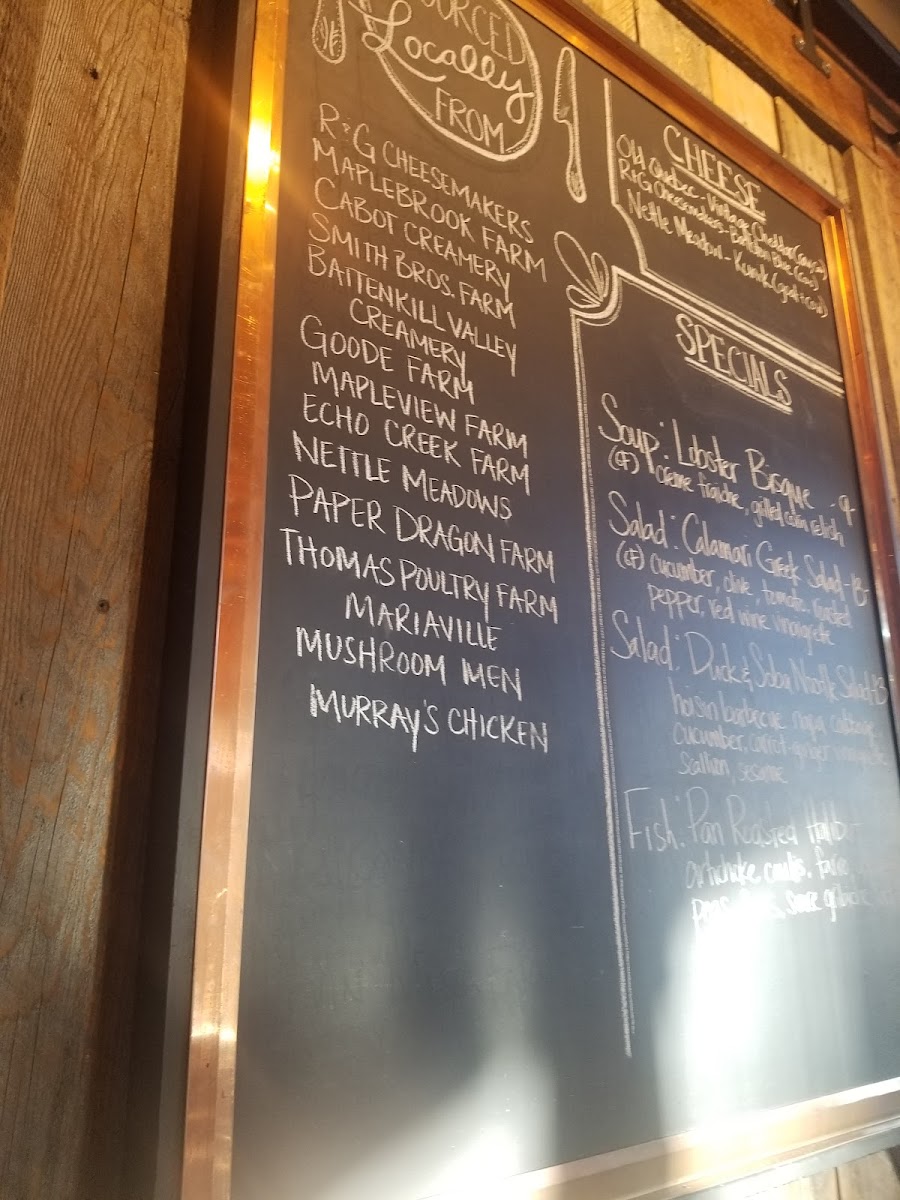 SOURCED
Locally
FROM
R&G CHEESEMAKERS
MAPLEBROOK FARM
CABOT CREAMERY
SMITH BROS. FARM
BATTENKILL VALLEY
CREAMERY
GOODE FARM
MAPLEVIEW FARM
ECHO CREEK FARM
NETTLE MEADOWS
PAPER DRAGON FARM
THOMAS POULTRY FARM
MARIAVILLE
MUSHROOM MEN
MURRAY'S CHICKEN
CHEESE
Old Quebec - Vintage Cheddar (cow)
R&G Cheesemakers - Blue (cow)
Nettle Meadow - Kunik (goat + cow)
SPECIALS
Soup: Lobster Bisque - 9-
(GF) creme fraiche, grilled corn relish
Salad: Calamari Greek Salad - 13-
(GF) cucumber, olive, tomato, roasted
pepper, red wine vinaigrette
Salad: Duck & Soba Noodle Salad - 13
hoisin barbecue, napa cabbage,
cucumber, carrot-ginger vinaigrette
scallion, sesame
Fish: Pan Roasted
artichoke
sauce